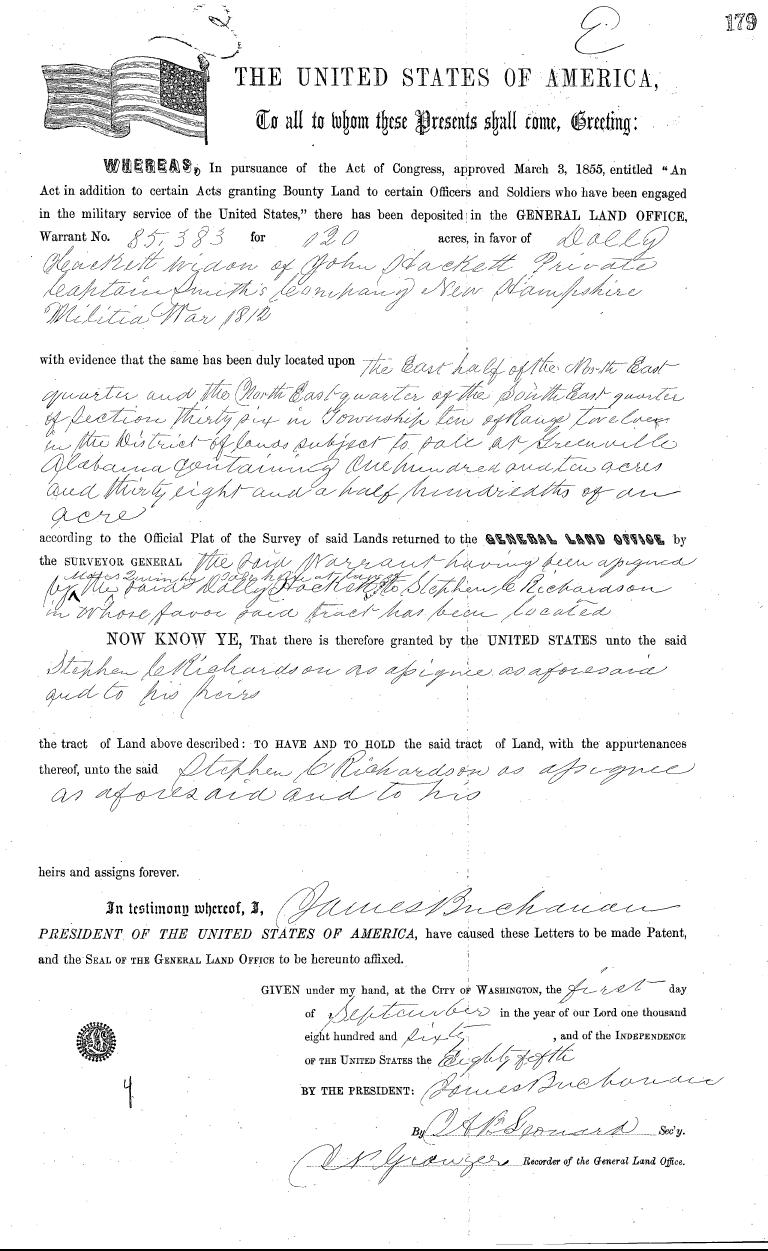 179
THE UNITED STATES OF AMERICA,
To all to whom these Presents shall come, Greeting:
WHEREAS, In pursuance of the Act of Congress, approved March 3, 1855, entitled "An
Act in addition to certain Acts granting Bounty Land to certain Officers and Soldiers who have been engaged
in the military service of the United States," there has been deposited in the GENERAL LAND OFFICE,
Warrant No. 85,383 for 120 acres, in favor of Dolly
Hackett widow of John Hackett Private
Captain Smith's Company New Hampshire
Militia War 1812
with evidence that the same has been duly located upon the East half of the North East
quarter and the North East quarter of the South East quarter
of Section thirty six in Township ten of Range twelve
in the District of lands subject to sale at Greenville
Alabama containing One hundred and ten acres
and thirty eight and a half hundredths of an
acre
according to the Official Plat of the Survey of said Lands returned to the GENERAL LAND OFFICE by
the SURVEYOR GENERAL the said Warrant having been assigned
by the said Dolly Hackett to Stephen C Richardson
in whose favor said tract has been located
NOW KNOW YE, That there is therefore granted by the UNITED STATES unto the said
Stephen C Richardson as assignee as aforesaid
and to his heirs
the tract of Land above described: TO HAVE AND TO HOLD the said tract of Land, with the appurtenances
thereof, unto the said Stephen C Richardson as assignee
as aforesaid and to his
heirs and assigns forever.
In testimony whereof, I, James Buchanan
PRESIDENT OF THE UNITED STATES OF AMERICA, have caused these Letters to be made Patent,
and the SEAL OF THE GENERAL LAND OFFICE to be hereunto affixed.
GIVEN under my hand, at the CITY OF WASHINGTON, the first day
of September in the year of our Lord one thousand
eight hundred and sixty, and of the INDEPENDENCE
OF THE UNITED STATES the Eighty fifth
BY THE PRESIDENT: James Buchanan
By J.A.B. Leonard Sec'y.
J.N. Granger Recorder of the General Land Office.